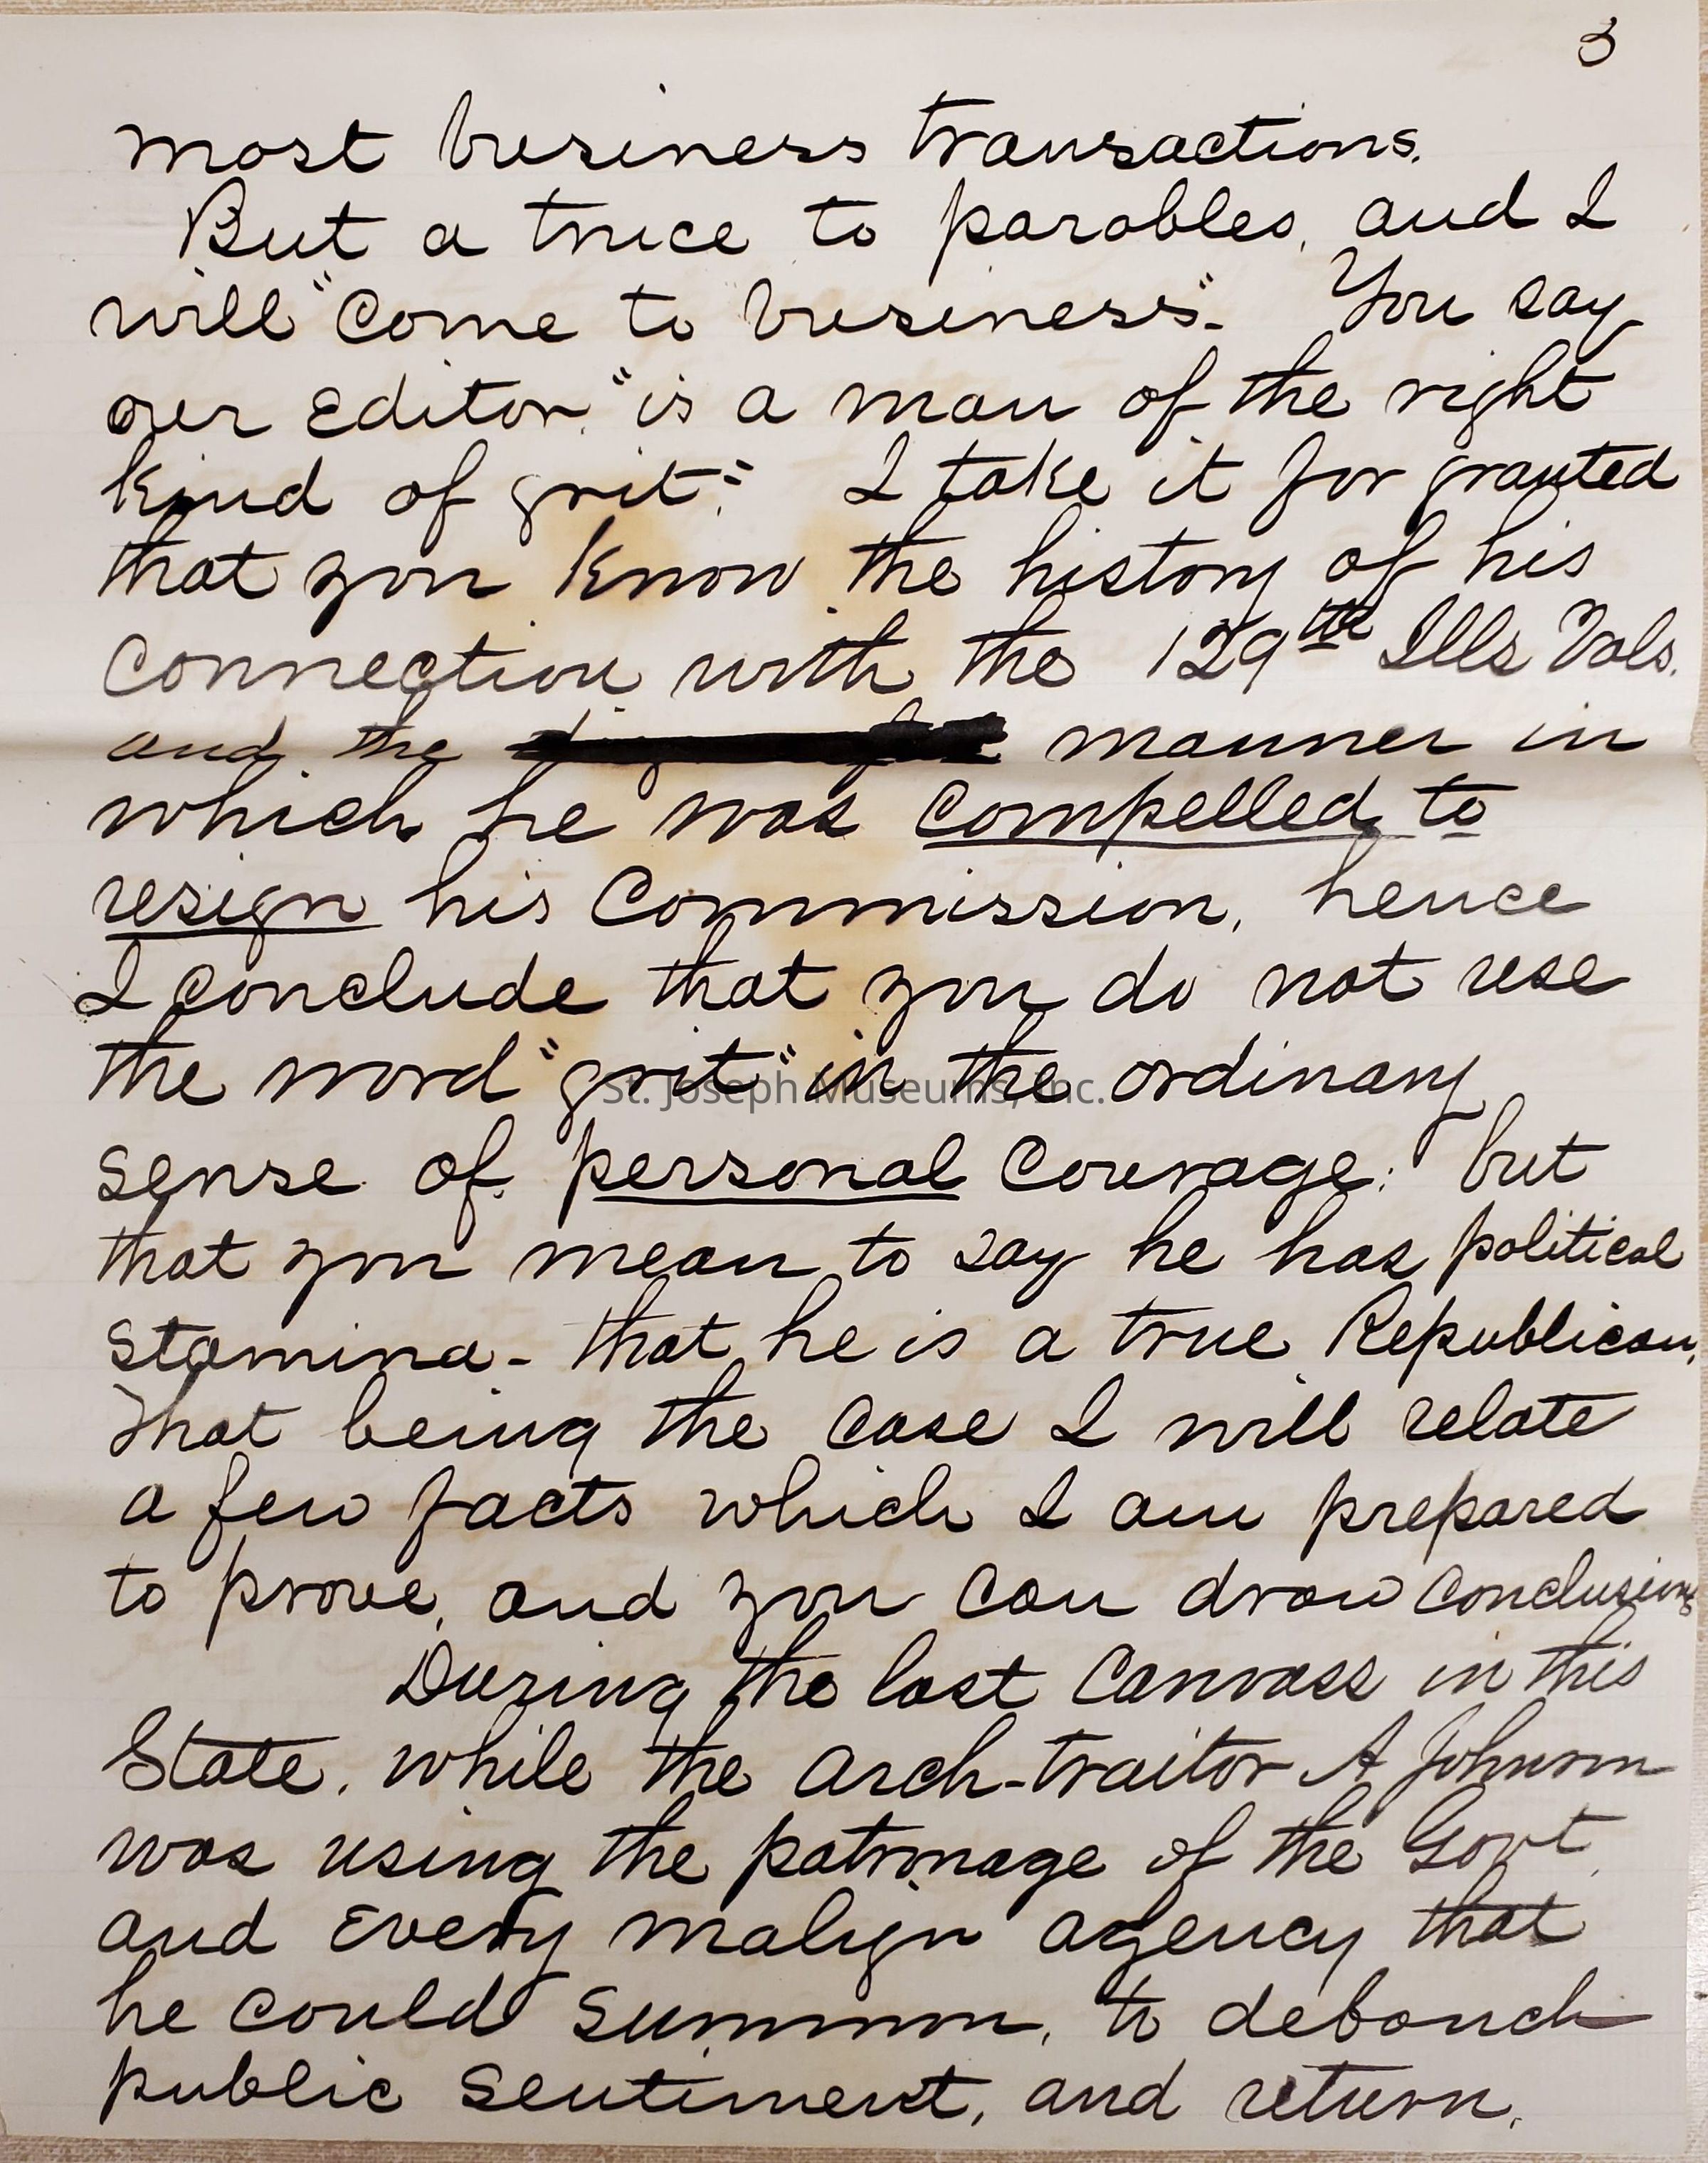 3
most business transactions.
But a truce to parables, and I
will "Come to business". You say
our Editor "is a man of the right
kind of grit." I take it for granted
that you know the history of his
Connection with the 129th Ills Vols.
and the manner in
which he was compelled to
resign his Commission, hence
I conclude that you do not use
the word "grit" in the ordinary
St. Joseph Museums, Inc.
sense of personal Courage: but
that you mean to say he has political
stamina - that he is a true Republican.
That being the case I will relate
a few facts which I am prepared
to prove, and you can draw Conclusions
During the last Canvass in this
State, while the arch-traitor A Johnson
was using the patronage of the Govt.
and Every malign agency that
he could summon, to debauch
public sentiment, and return,